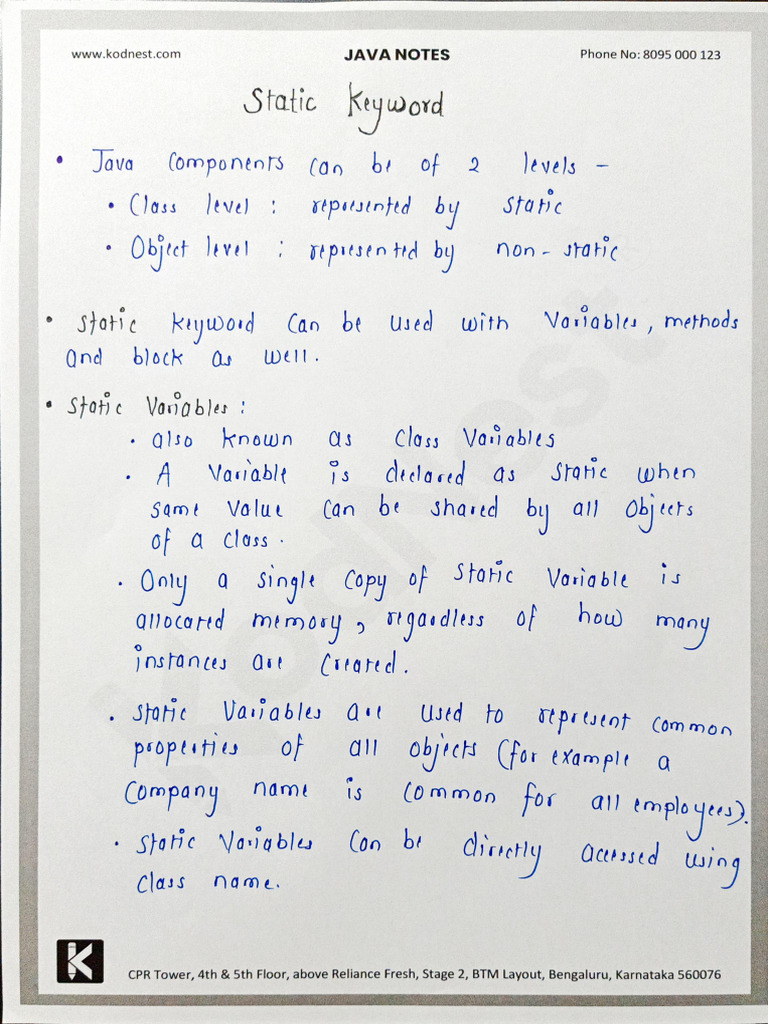 www.kodnest.com JAVA NOTES Phone No: 8095 000 123
Static Keyword
• Java Components can be of 2 levels -
• Class level : represented by static
• Object level : represented by non-static
• Static keyword can be used with Variables, methods
and block as well.
• Static Variables :
• also known as class Variables
• A Variable is declared as static when
same value can be shared by all objects
of a class.
• Only a single copy of static Variable is
allocated memory, regardless of how many
instances are created.
• Static Variables are used to represent common
properties of all objects (for example a
Company name is common for all employees).
• Static Variables can be directly accessed using
class name.
Kodnest
K
CPR Tower, 4th & 5th Floor, above Reliance Fresh, Stage 2, BTM Layout, Bengaluru, Karnataka 560076